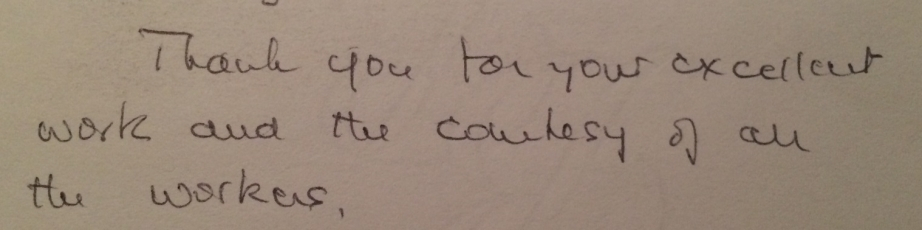 Thank you for your excellent
work and the courtesy of all
the workers.